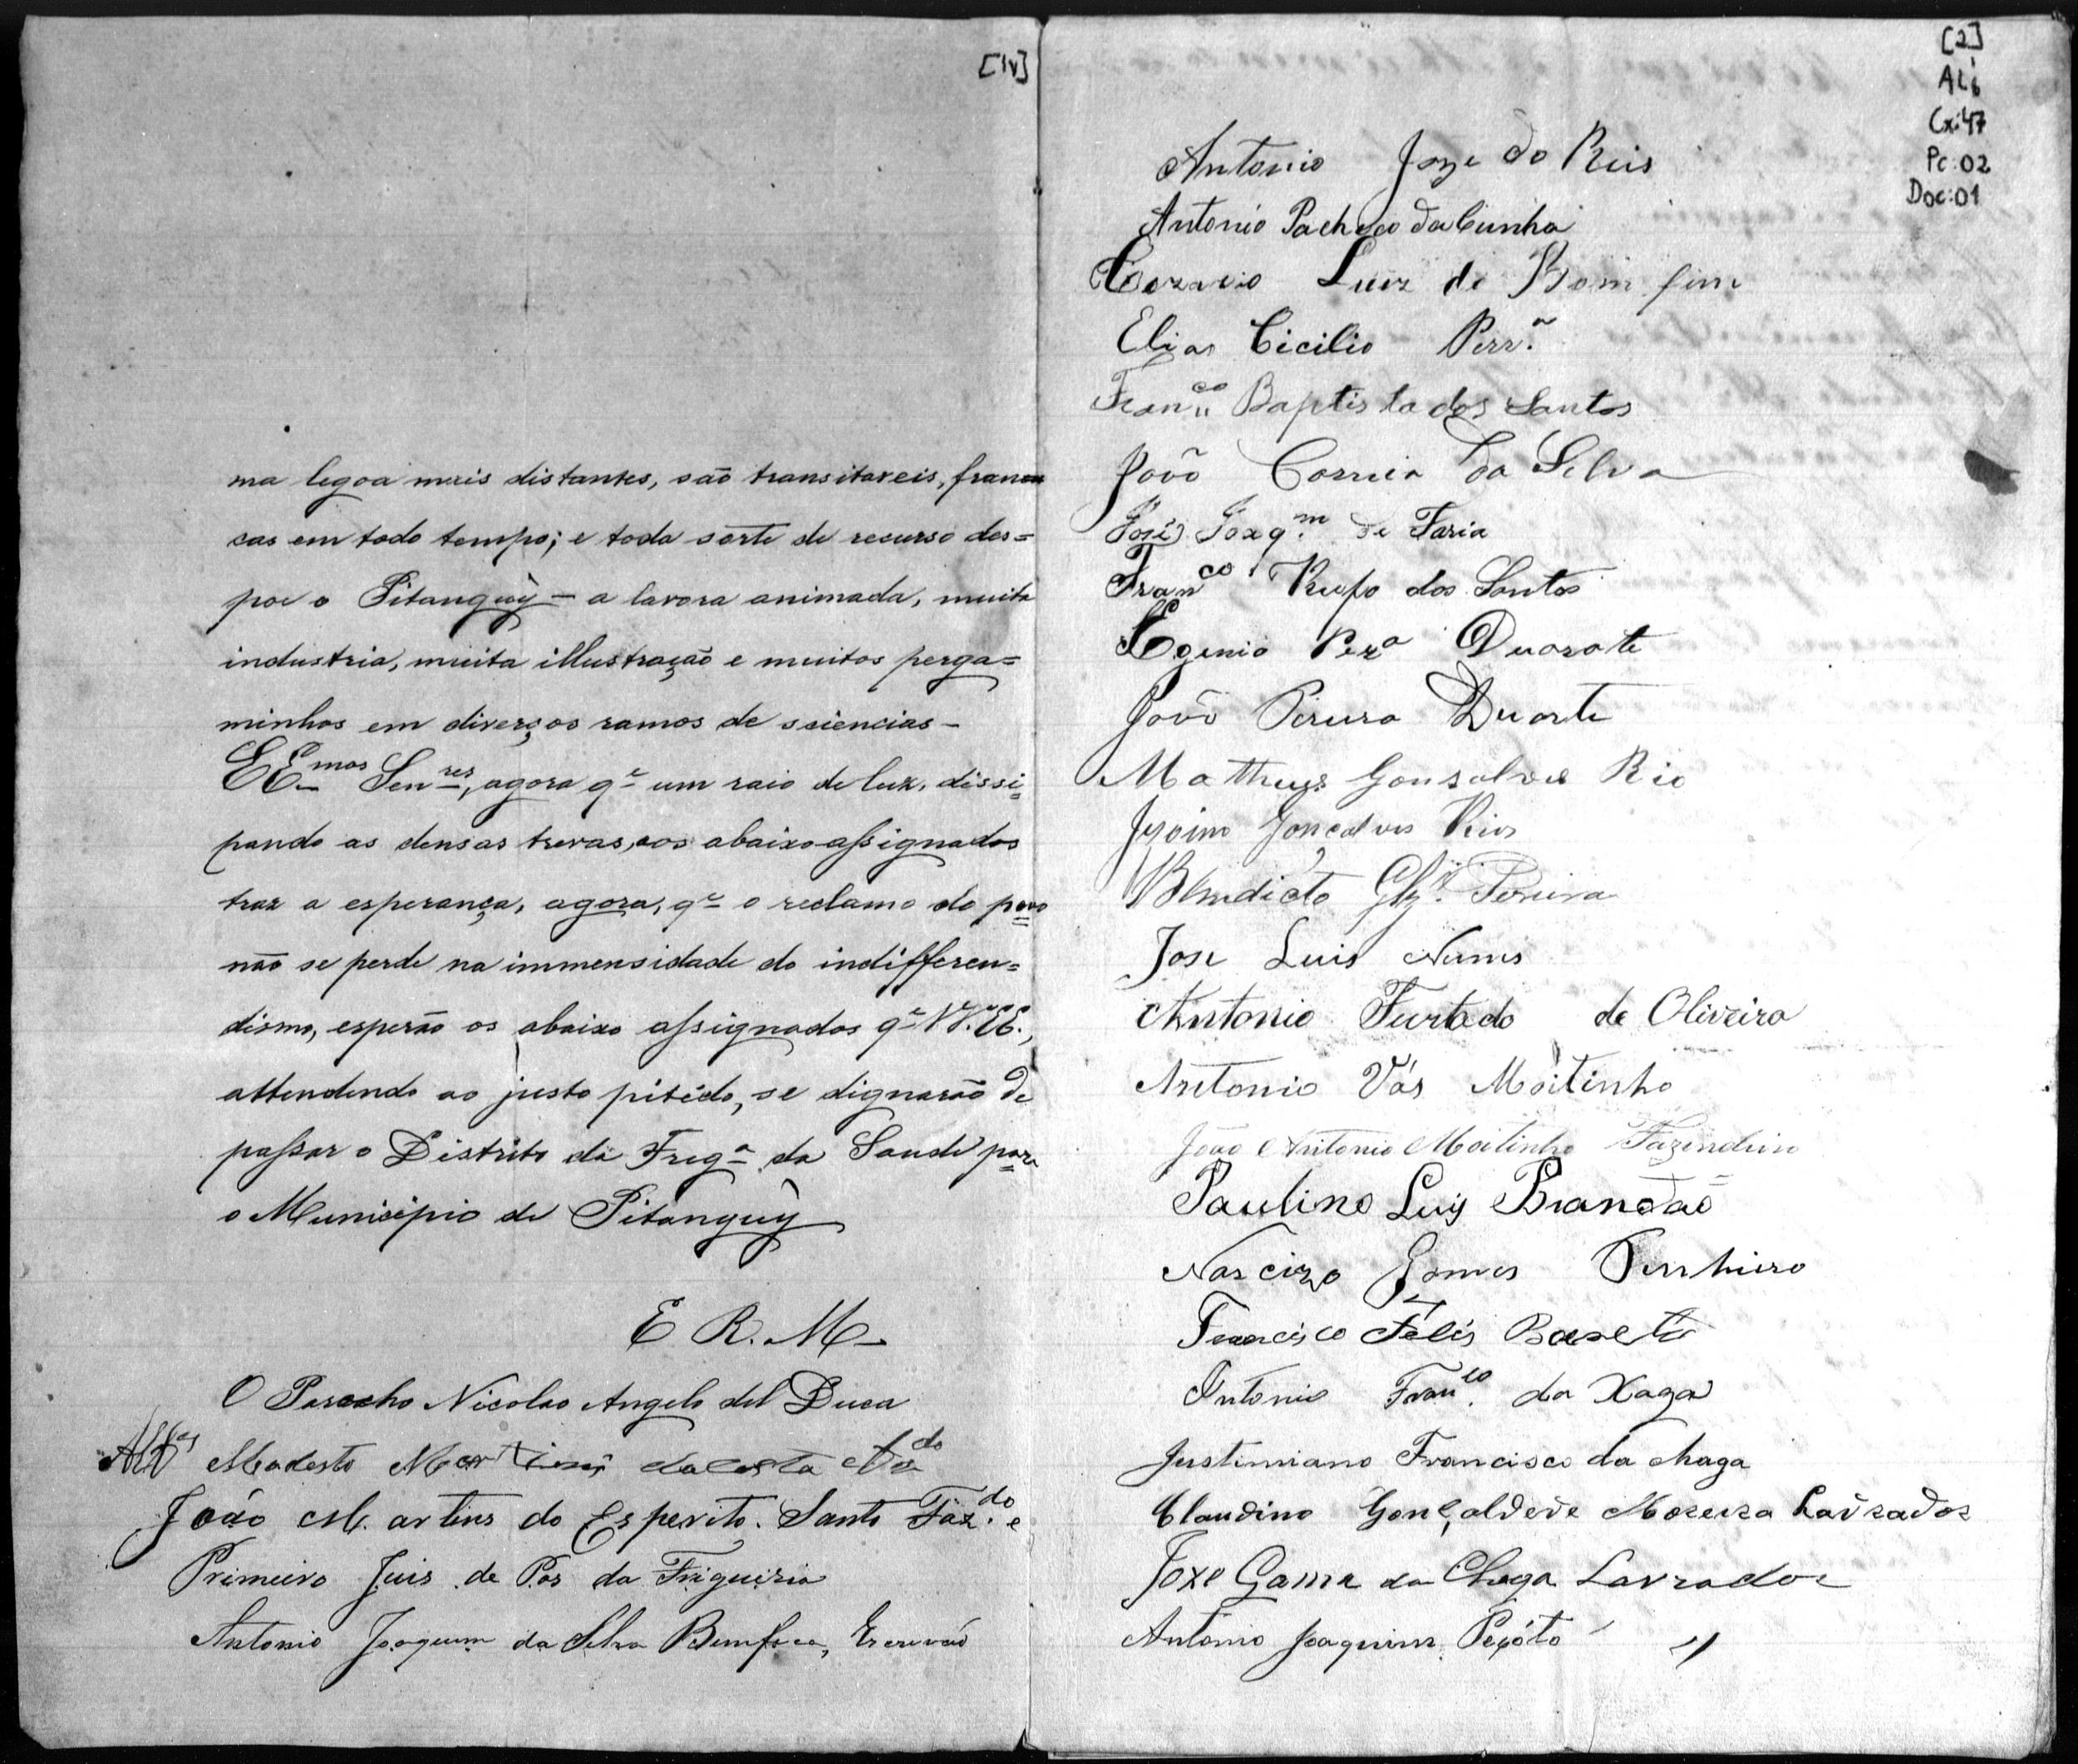 [1v]
ma legoa mais distantes, são transitaveis, fran
cas em todo tempo; e toda sorte de recurso des=
poe o Pitanguÿ – a lavora animada, muita
industria, muita illustração e muitos perga=
minhos em diverços ramos de sciencias –
EE.mos Sen.res, agora q.e um raio de luz, dissi=
pando as densas trevas, aos abaixo assignados
traz a esperança, agora, q.e o reclamo do povo
não se perde na immensidade do indifferen=
dismo, esperão os abaixo assignados q.e VV. EE.,
attendendo ao justo pitido, se dignarão de
passar o Distrito da Freg.a da Saude para
o Municipio de Pitanguÿ
E. R. M.
O Parocho Nicolao Angelo del Duca
Modesto Martins da Costa
João Martins do Esperito Santo Faz.do e
Primeiro Juis de Pas da Friguizia
Antonio Joaquim da Silva Escrivão
[2]
ALi
Cx:47
Pc:02
Doc:01
Antonio Joze do Reis
Antonio Pacheco da Cunha
Luiz de Bom fim
Elias Cicilio Perr.a
Fran.co Baptista dos Santos
João Correia da Selva
José Joaq.m de Faria
Fran.co Rufo dos Santos
Egenio Per.a Duarate
João Pereira Duarte
Matheus Gonsalves Rio
Gonçalves Rios
Benedicto Glz. Pereira
Jose Luis Nunes
Antonio Furtado de Oliveira
Antonio Vás Moitinho
João Antonio Moitinho Fazendeiro
Paulino Luiz Brandão
Narcizo Gomes Pinhiero
Francisco Felis
Antonio Fran.co da Xaga
Justiniano Francisco da Chaga
Claudino Gonçaldeve Moreira Lavrador
Joze Gama da Chaga Lavrador
Antonio Joaquim Peyóto "